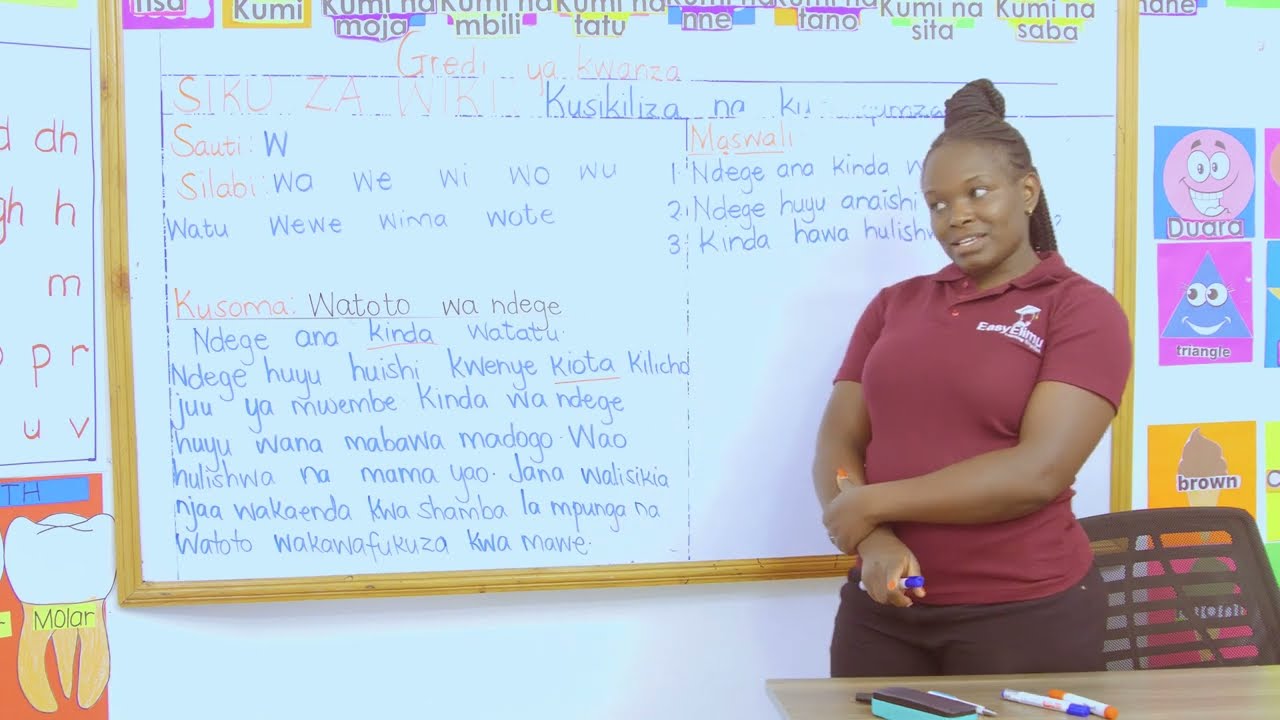 Kumi
Kumi na moja
Kumi na mbili
Kumi na tatu
Kumi na nne
Kumi na tano
Kumi na sita
Kumi na saba
nane
Gredi ya kwanza
SIKU ZA WIKI: Kusikiliza na
Sauti: W
Silabi: wa we wi wo wu
Watu wewe wima wote
Kusoma: Watoto wa ndege
Ndege ana kinda watatu.
Ndege huyu huishi kwenye kiota kilicho
juu ya mwembe. Kinda wa ndege
huyu wana mabawa madogo. Wao
hulishwa na mama yao. Jana walisikia
njaa wakaenda kwa shamba la mpunga na
watoto wakawafukuza kwa mawe.
Maswali
1. Ndege ana kinda
2. Ndege huyu anaishi
3. Kinda hawa
EasyElimu
dh
h
m
p r
u v
TH
Molar
Duara
triangle
brown